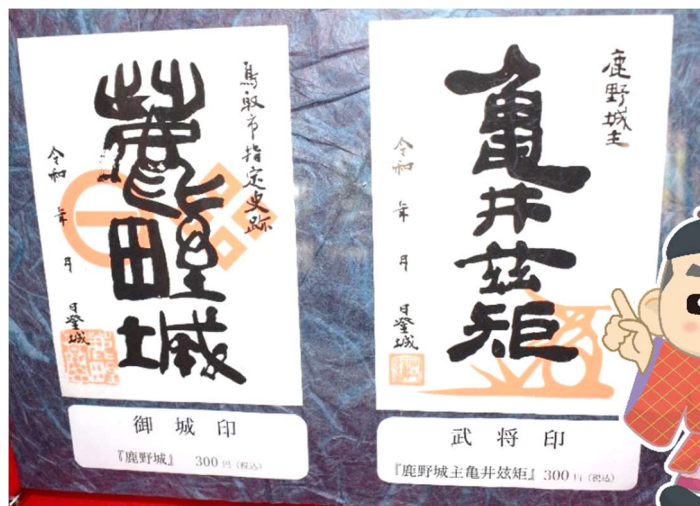 鳥取市指定史跡
鹿野城
令和 年 月 日登城
御城印
『鹿野城』 300円(税込)
鹿野城主
亀井茲矩
令和 年 月 日登城
武将印
『鹿野城主亀井玆矩』300円(税込)